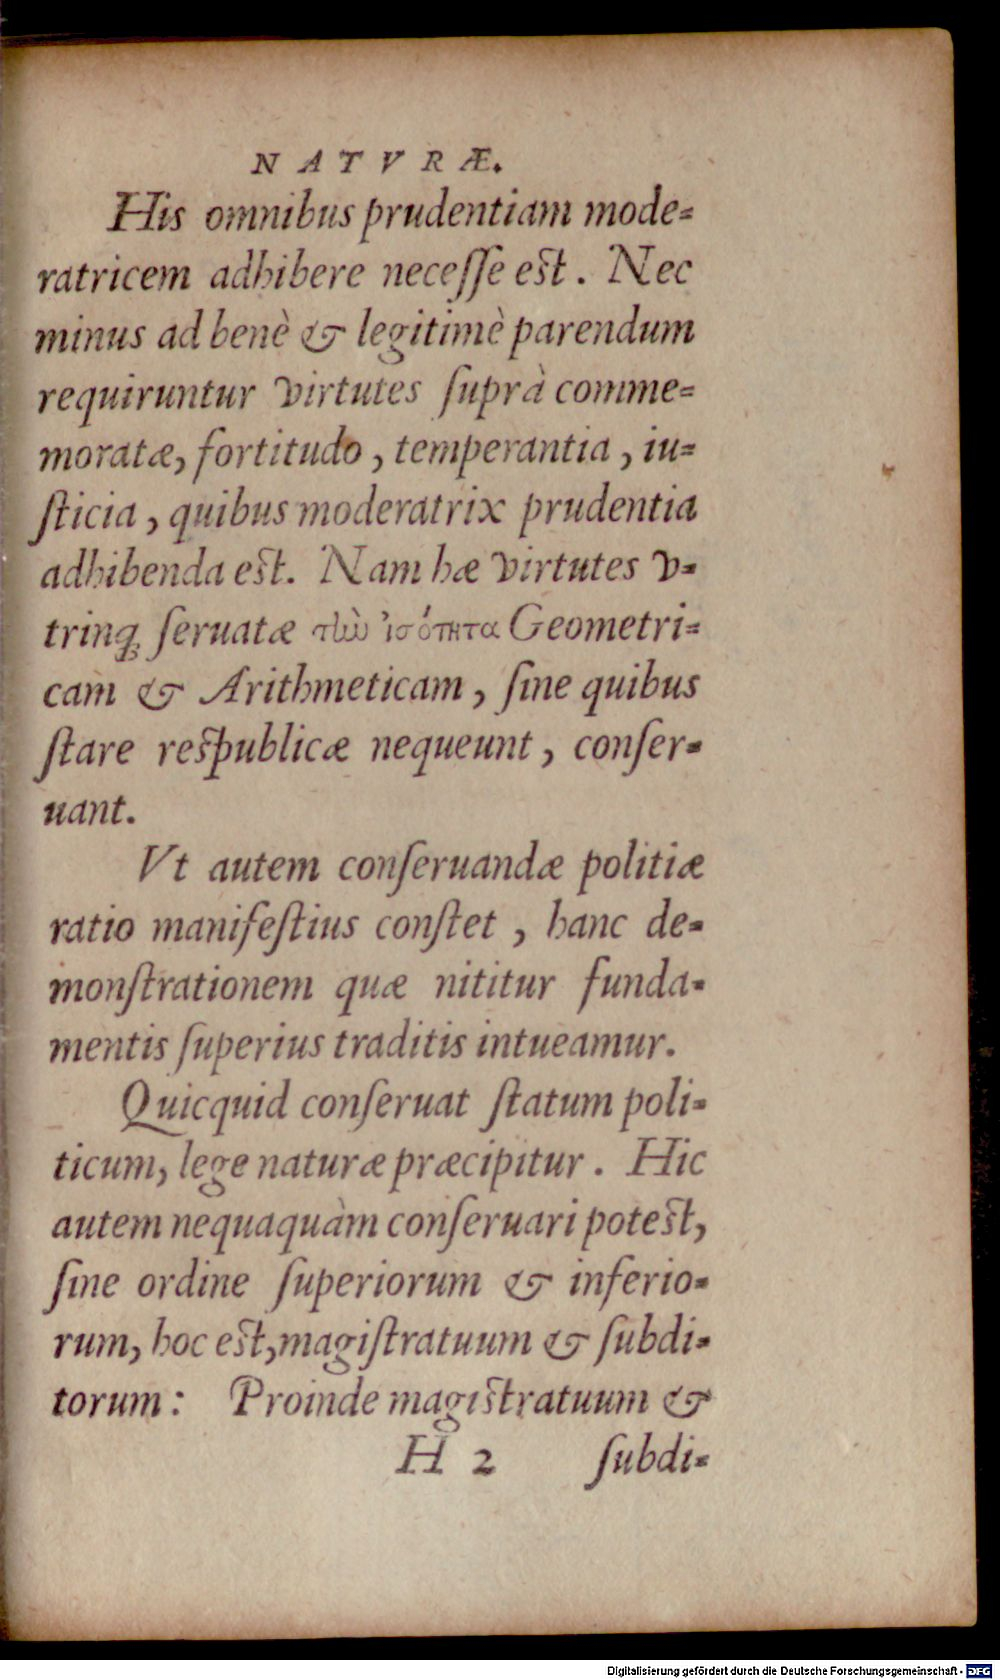 NATVRÆ.
His omnibus prudentiam mode-
ratricem adhibere necesſe est. Nec
minus ad benè & legitimè parendum
requiruntur virtutes ſuprà comme-
moratæ, fortitudo, temperantia, iu-
ſticia, quibus moderatrix prudentia
adhibenda est. Nam hæ virtutes v-
trinq; ſeruatæ τὴν ἰσότητα Geometri-
cam & Arithmeticam, ſine quibus
ſtare respublicæ nequeunt, conſer-
uant.
Vt autem conſeruandæ politiæ
ratio manifeſtius conſtet, hanc de-
monſtrationem quæ nititur funda-
mentis ſuperius traditis intueamur.
Quicquid conſeruat ſtatum poli-
ticum, lege naturæ præcipitur. Hic
autem nequaquàm conſeruari potest,
ſine ordine ſuperiorum & inferio-
rum, hoc est, magiſtratuum & ſubdi-
torum: Proinde magistratuum &
H 2 ſubdi-
Digitalisierung gefördert durch die Deutsche Forschungsgemeinschaft - DFG